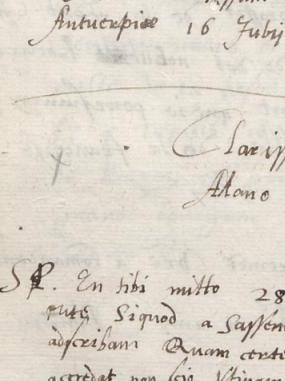 Antuerpiae 16 Julij
Clariss
Alano
SP. En tibi mitto 28
Siquod a Sassen
adscribam Quam certe
accedat non scio